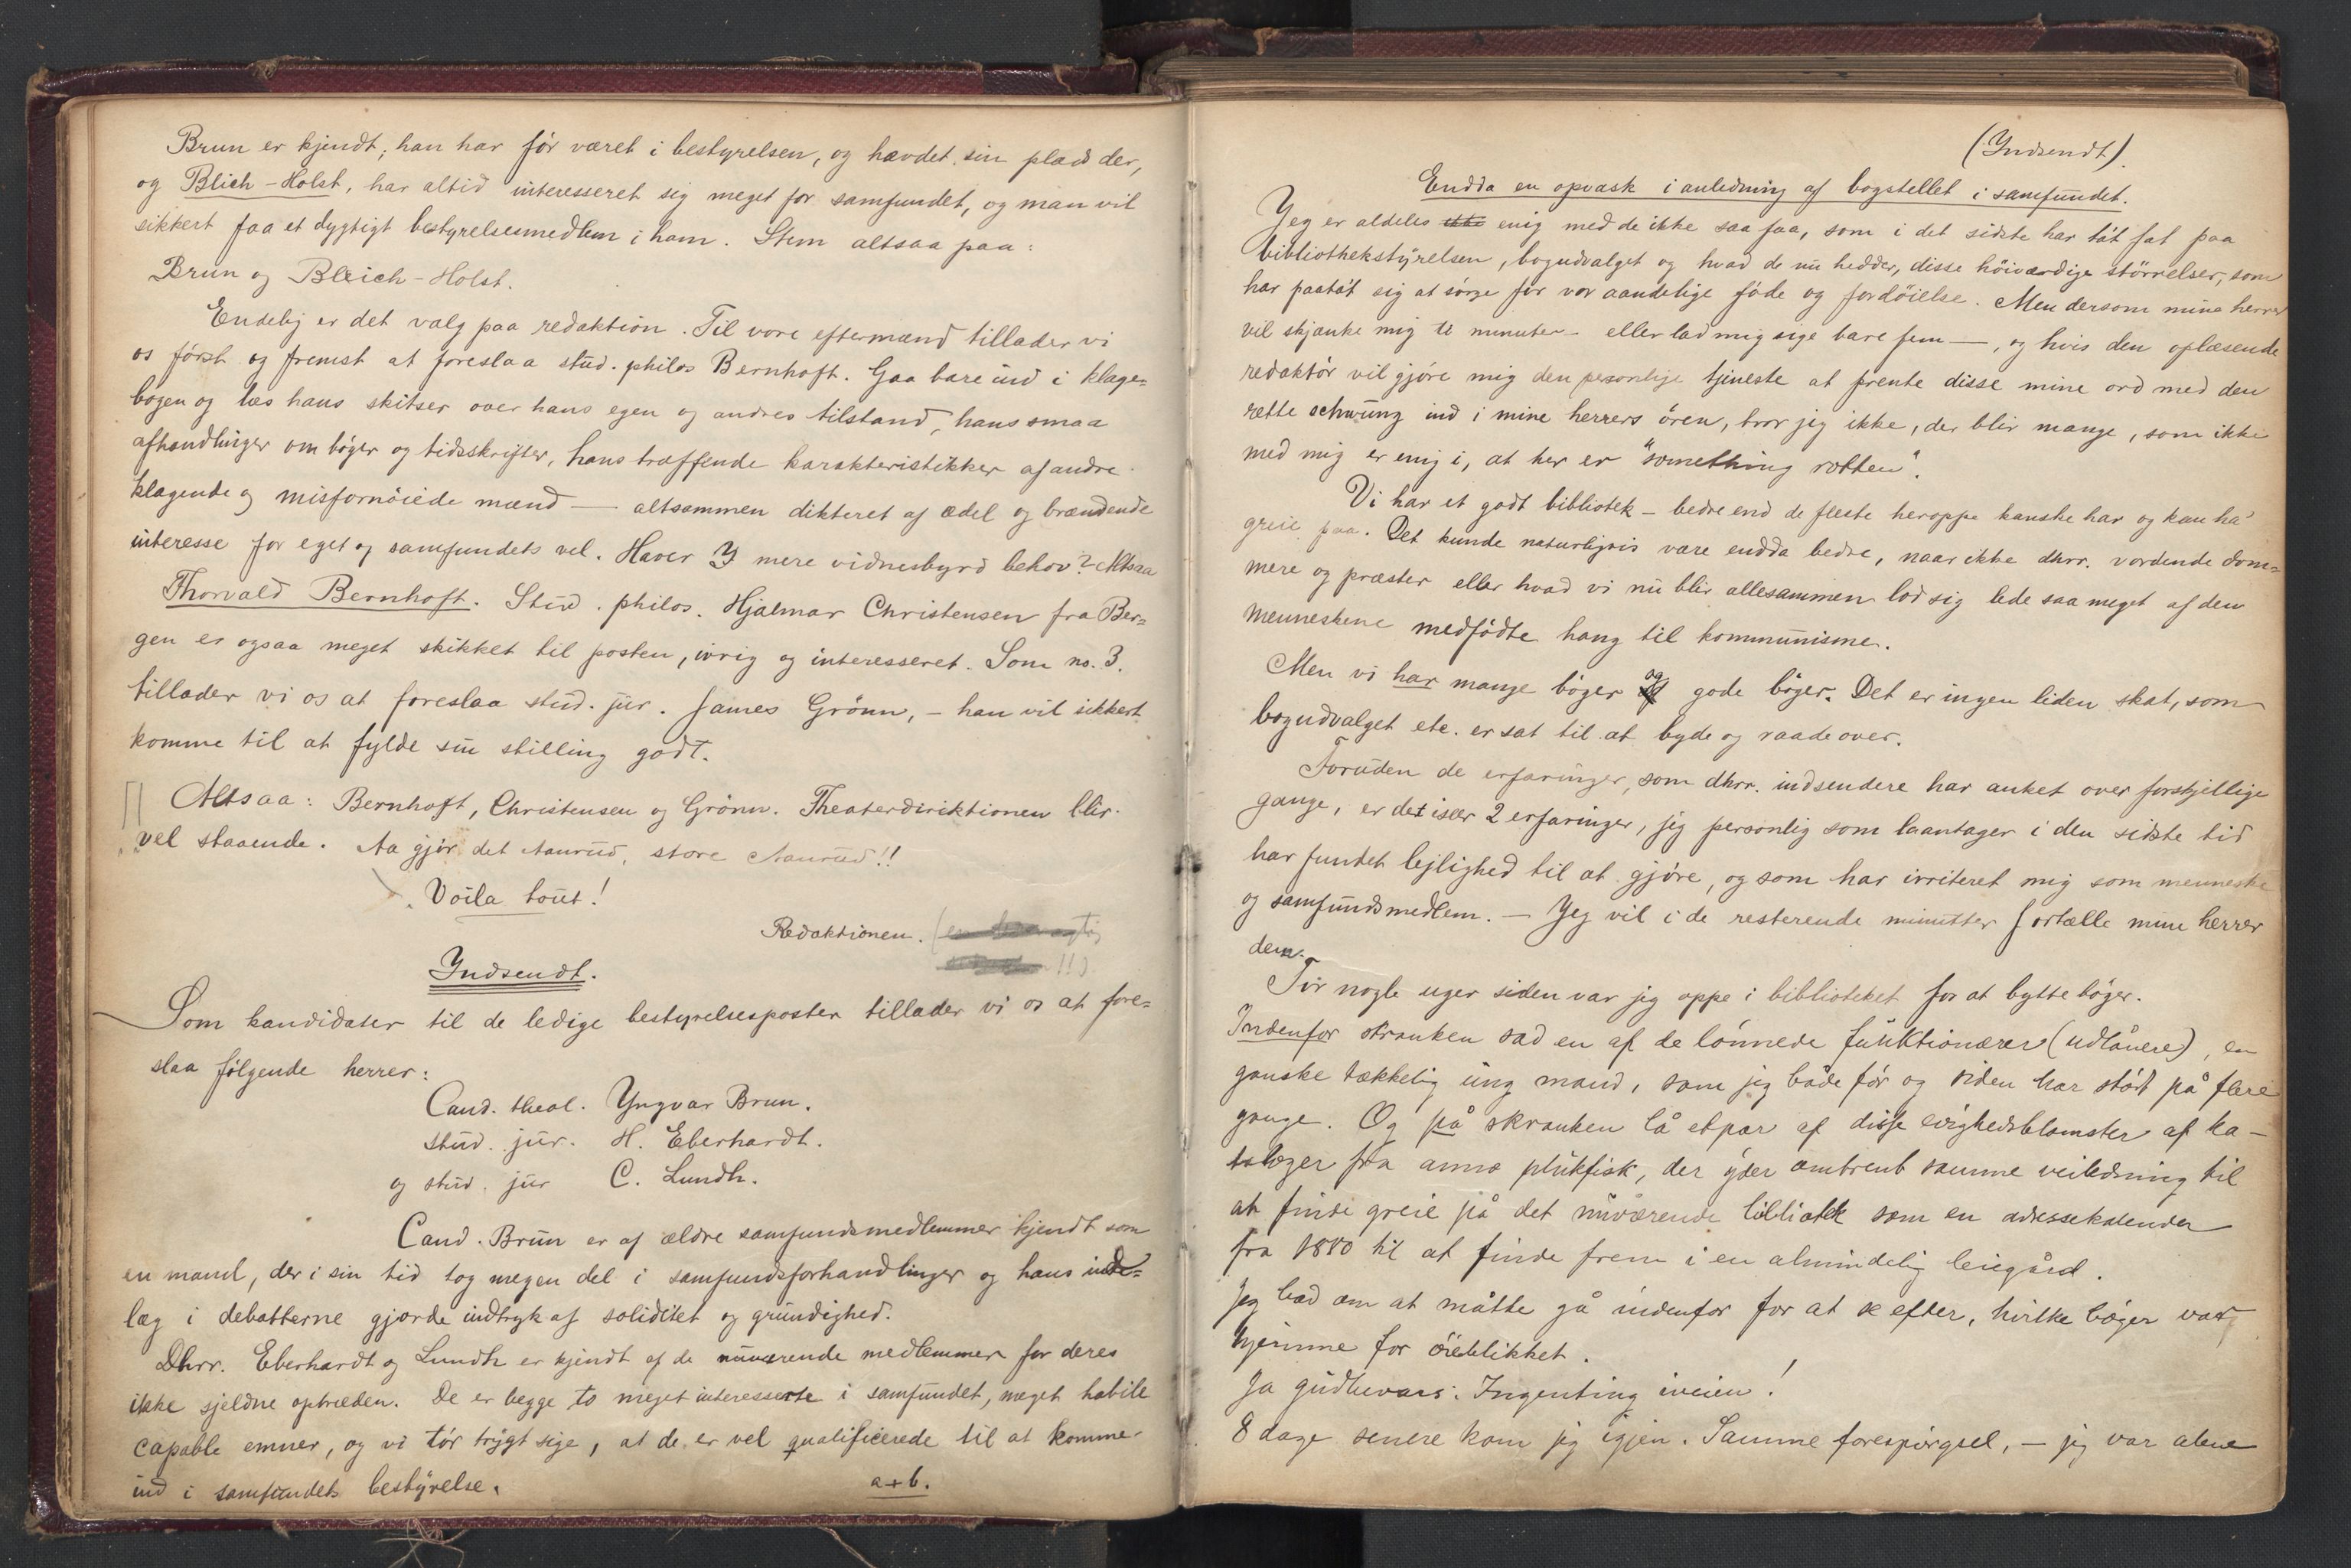 Brun er kjendt; han har før været i bestyrelsen, og hævdet sin plads der,
og Blich-Holst, har altid interesseret sig meget for samfundet, og man vil
sikkert faa et dygtigt bestyrelsesmedlem i ham. Stem altsaa paa:
Brun og Bleich-Holst.
Endelig er det valg paa redaktion. Til vore eftermænd tillader vi
os først og fremst at foreslaa stud. philos Bernhoft. Gaa bare ind i klage=
bogen og læs hans skitser over hans egen og andres tilstand, hans smaa
afhandlinger om bøger og tidsskrifter, hans træffende karakteristikker af andre
klagende og misfornøiede mænd — altsammen dikteret af ædel og brændende
interesse for eget og samfundets vel. Haver I mere vidnesbyrd behov? Altsaa
Thorvald Bernhoft. Stud. philos. Hjalmar Christensen fra Ber=
gen er ogsaa meget skikket til posten, ivrig og interesseret. Som no. 3.
tillader vi os at foreslaa stud. jur. James Grönn, – han vil sikkert
komme til at fylde sin stilling godt.
Altsaa: Bernhoft, Christensen og Grönn. Theaterdirektionen blir
vel staaende. Aa gjør det Aanrud, store Aanrud!!
Voila tout!
Redaktionen.
!!)
Indsendt.
Som kandidater til de ledige bestyrelsesposter tillader vi os at fore=
slaa følgende herrer:
Cand. theol. Yngvar Brun.
stud. jur. H. Eberhardt.
og stud. jur C. Lundh.
Cand. Brun er af ældre samfundsmedlemmer kjendt som
en mand, der i sin tid tog megen del i samfundsforhandlinger og hans inde=
læg i debatterne gjorde indtryk af soliditet og grundighed.
Dhrr. Eberhardt og Lundh er kjendt af de nuværende medlemmer for deres
ikke sjeldne optræden. De er begge to meget interesserte i samfundet, meget habile
capable emner, og vi tör trygt sige, at de er vel qualificerede til at komme
ind i samfundets bestyrelse.
a+b.
(Indsendt).
Endda en opvask i anledning af bogstellet i samfundet.
Jeg er aldeles ikke enig med de ikke saa faa, som i det sidste har ta't fat paa
bibliothekstyrelsen, bogudvalget og hvad de nu hedder, disse höiværdige störrelser, som
har paatat sig at sørge for vor aandelige föde og fordöielse. Men dersom mine herrer
vil skjænke mig ti minuter – eller lad mig sige bare fem —, og hvis den oplæsende
redaktör vil gjöre mig den personlige tjeneste at prente disse mine ord med den
rette schwung ind i mine herrers ören, tror jeg ikke, der blir mange, som ikke
med mig er enig i, at her er "something rotten".
Vi har et godt bibliotek – bedre end de fleste heroppe kanske har og kan ha'
greie paa. Det kunde naturligvis være endda bedre, naar ikke dhrr. vordende dom=
mere og præster eller hvad vi nu blir allesammen lod sig lede saa meget af den
menneskene medfödte hang til kommunisme.
Men vi har mange böger og gode böger. Det er ingen liden skat, som
bogudvalget etc. er sat til at byde og raade over.
Foruden de erfaringer, som dhrr. indsendere har anket over forskjellige
gange, er det især 2 erfaringer, jeg personlig som laantager i den sidste tid
har fundet lejlighed til at gjøre, og som har irriteret mig som menneske
og samfundsmedlem. — Jeg vil i de resterende minutter fortælle mine herrer
dem.
For nogle uger siden var jeg oppe i biblioteket for at bytte böger.
Indenfor skranken sad en af de lönnede funktionærer (udlånere), en
ganske tækkelig ung mand, som jeg både för og siden har stödt på flere
gange. Og på skranken lå et par af disse evighedsblomster af ka-
taloger fra anno plukfisk, der yder omtrent samme veiledning til
at finde greie på det nuværende bibliotek som en adressekalender
fra 1880 til at finde frem i en almindelig leiegård.
Jeg bad om at måtte gå indenfor for at se efter, hvilke böger var
hjemme for öieblikket.
Ja gudbevars. Ingenting iveien!
8 dage senere kom jeg igjen. Samme forespörgsel, – jeg var alene